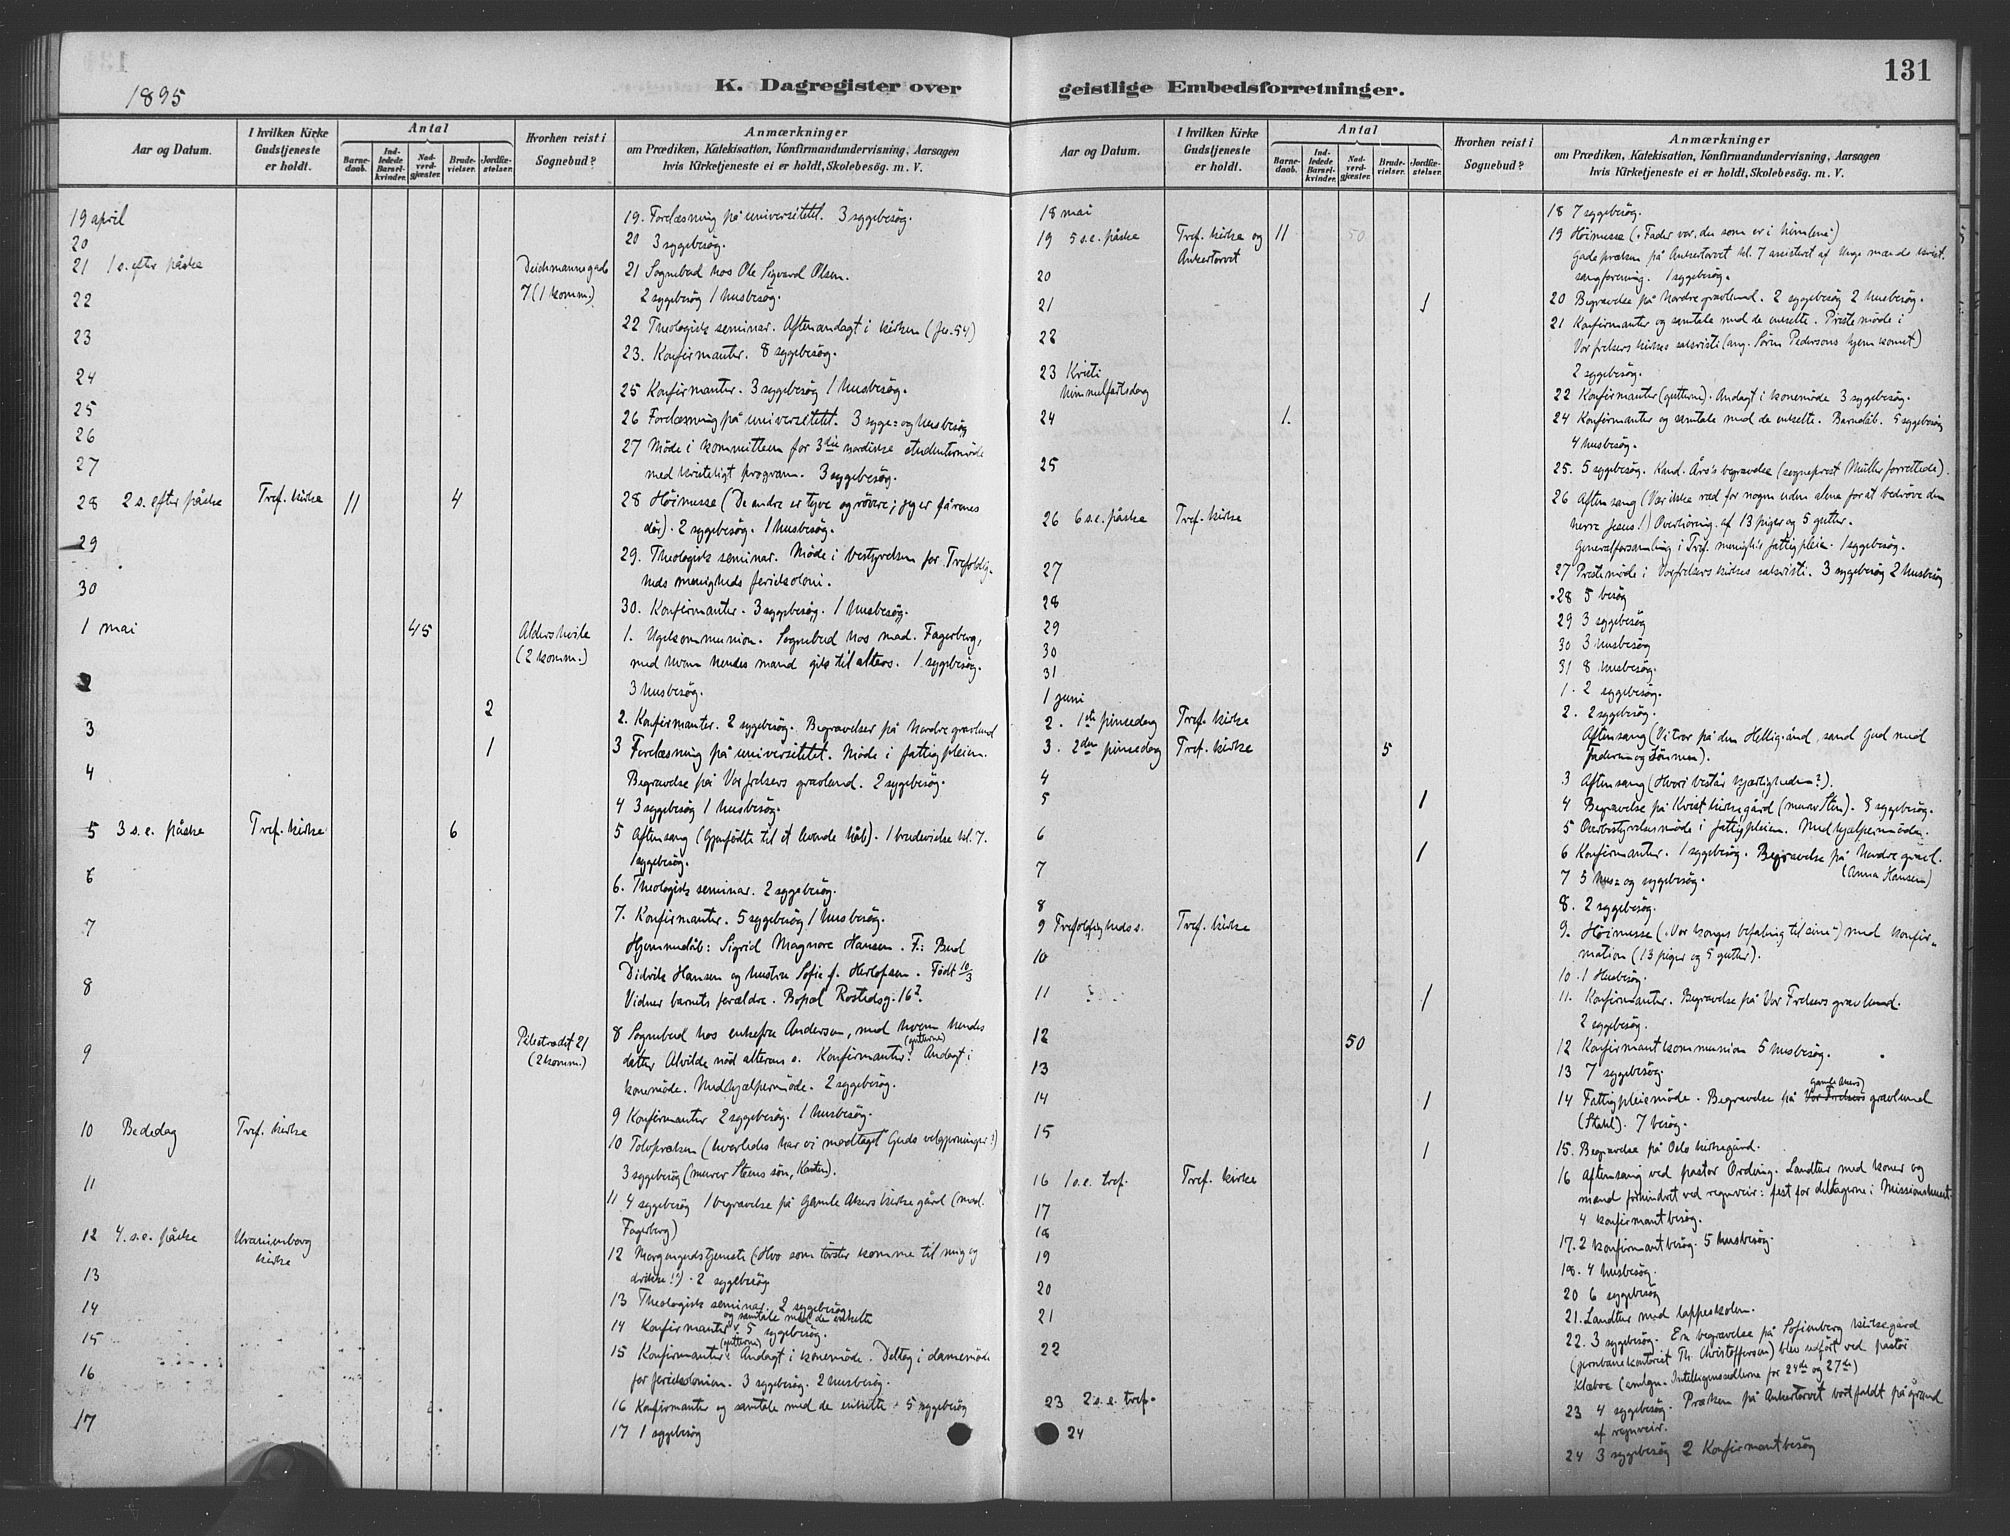 1895
K. Dagregister over
Aar og Datum.
I hvilken Kirke Gudstjeneste er holdt.
Antal
Barnedaab.
Indledede Barselkvinder.
Nadverdgjæster.
Brudevielser.
Jordfæstelser.
Hvorhen reist i Sognebud?
Anmærkninger
om Prædiken, Katekisation, Konfirmandundervisning, Aarsagen
hvis Kirketjeneste ei er holdt, Skolebesög. m. V.
19 april
19. Forelæsning på universitetet. 3 sygebesøg.
20
20 3 sygebesøg.
21 1 s. efter påske
Deichmannsgade 7 (1 komm.)
21 Sognebud hos Ole Sigvard Olsen.
2 sygebesøg 1 husbesøg.
22
22 Theologisk seminar. Aftenandagt i kirken (Jes. 54)
23
23. Konfirmanter. 8 sygebesøg.
24
25
25 Konfirmanter. 3 sygebesøg 1 husbesøg.
26
26 Forelæsning på universitetet. 3 syge= og husbesøg
27
27 Møde i kommitteen for 3die nordiske studentermøde
med kristeligt program. 3 sygebesøg.
28 2 s. efter påske Tref. kirke 11 4
28 Høimesse (De andre er tyve og røvere; jeg er fårenes
dør). 2 sygebesøg. 1 husbesøg.
29
29. Theologisk seminar. Møde i bestyrelsen for Trefoldig-
heds menigheds feriekoloni.
30
30. Konfirmanter. 3 sygebesøg. 1 husbesøg.
1 mai 45
Aldershvile (2 komm.)
1. Ugekommunion. Sognebud hos mad. Fagerberg,
med hvem hendes mand gik til alters. 1 sygebesøg.
3 husbesøg.
2 2
2. Konfirmanter. 2 sygebesøg. Begravelser på Nordre gravlund
3 1
3 Forelæsning på universitetet. Møde i fattigpleien.
Begravelse på Vor frelsers gravlund. 2 sygebesøg.
4
4 3 sygebesøg 1 husbesøg.
5 3 s. e. påske Tref. kirke 6
5 Aftensang (Gjenfødte til et levende håb). 1 brudevielse kl. 7.
1 sygebesøg.
6
6. Theologisk seminar. 2 sygebesøg.
7
7. Konfirmanter. 5 sygebesøg 1 husbesøg.
Hjemmedåb: Sigrid Magnore Hansen. F: Bud
Didrik Hansen og hustru Sofie f. Herlofsen. Født 10/3
Vidner barnets forældre. Bopæl Rostedsg. 16
8
Pilestrædet 21 (2 komm.)
8 Sognebud hos enkefru Andersen, med hvem hendes
datter Alvilde nød alterens s. Konfirmanter (gutterne). Andagt i
konemøde. Medhjælpermøde. 2 sygebesøg.
9
9 Konfirmanter 2 sygebesøg. 1 husbesøg.
10 Bededag Tref. kirke
10 Tolvpræken (hvorledes har vi modtaget Guds velgjerninger?)
3 sygebesøg (murer Steens søn, Karsten).
11
11 4 sygebesøg 1 begravelse på Gamle Akers kirkegård (mad.
Fagerberg)
12 4. s. e. påske Uranienborg kirke
12 Morgengudstjeneste (Hvo som tørster komme til mig og
drikke!). 2 sygebesøg
13
13 Theologisk seminar. 2 sygebesøg.
14
14 Konfirmanter og samtale med de enkelte 5 sygebesøg.
15
15 Konfirmanter (gutterne). Andagt i konemøde. Deltog i damemøde
for feriekolonien. 3 sygebesøg. 2 husbesøg.
16
16 Konfirmanter og samtale med de enkelte. 5 sygebesøg
17
17 1 sygebesøg
131
geistlige Embedsforretninger.
Aar og Datum.
I hvilken Kirke Gudstjeneste er holdt.
Antal
Barnedaab.
Indledede Barselkvinder.
Nadverdgjæster.
Brudevielser.
Jordfæstelser.
Hvorhen reist i Sognebud?
Anmærkninger
om Prædiken, Katekisation, Konfirmandundervisning, Aarsagen
hvis Kirketjeneste ei er holdt, Skolebesög. m. V.
18 mai
18 7 sygebesøg.
19 5 s. e. påske Tref. kirke og Ankertorvet 11 50
19 Høimesse ("Fader vor, du som er i himlene")
Gadepræken på Ankertorvet kl. 7 assisteret af Unge mænds krist.
sangforening. 1 sygebesøg.
20
20 Begravelse på Nordre gravlund. 2 sygebesøg 2 husbesøg.
21 1
21 Konfirmanter og samtale med de enkelte. Prestemøde i
Vor frelsers kirkes sakristi (ang. Søren Pedersens hjemkomst)
2 sygebesøg.
22
22 Konfirmanter (gutterne). Andagt i konemøde 3 sygebesøg.
23 Kristi himmelfartsdag
24 1.
24 Konfirmanter og samtale med de enkelte. Barnedåb. 5 sygebesøg
4 husbesøg.
25
25. 5 sygebesøg. Kand. Års's begravelse (sogneprest Müller forrettede).
26 6 s. e. påske Tref. kirke
26 Aftensang (Vær ikke ræd for nogen uden alene for at bedrøve den
herre Jesus!) Overhøring af 13 piger og 5 gutter.
Generalforsamling i Tref. menigh's fattigpleie. 1 sygebesøg.
27
27 Prestemøde i Vor frelsers kirkes sakristi. 3 sygebesøg 2 husbesøg
28
28 5 besøg
29
29 3 sygebesøg
30
30 3 husbesøg
31
31 8 husbesøg.
1 juni
1. 2 sygebesøg.
2. 1ste pinsedag Tref. kirke
2. 2 sygebesøg.
Aftensang (Vi tror på den Hellig ånd, sand Gud med
Faderen og Sønnen).
3. 2den pinsedag Tref. kirke 5
3 Aftensang (Hvori består kjærligheden?).
4
4 Begravelse på Krist kirkegård (murer Sten). 8 sygebesøg.
5 1
5 Overbestyrelsesmøde i fattigpleien. Medhjælpermøde.
6
6 Konfirmanter. 1 sygebesøg. Begravelse på Nordre gravl.
(Anna Hansen)
7 1
7 5 hus= og sygebesøg.
8
8. 2 sygebesøg.
9 Trefoldigheds s. Tref. kirke
9. Høimesse ("Vor konges befaling til sine") med konfir-
mation (13 piger og 5 gutter).
10
10. 1 husbesøg.
11 1
11. Konfirmanter. Begravelse på Vor Frelsers gravlund.
2 sygebesøg.
12 50
12 Konfirmantkommunion 5 husbesøg.
13
13 7 sygebesøg.
14 1
14 Fattigpleiemøde. Begravelse på Vor Frelsers gamle Akers gravlund
(Stahl). 7 besøg.
15 1
15. Begravelse på Oslo kirkegård.
16 1 s. e. tref. Tref. kirke
16 Aftensang ved pastor Ording. Landtur med koner og
mænd forhindret ved regnveir: fest for deltagerne i Missionshuset.
4 konfirmantbesøg.
17
17. 2 konfirmantbesøg. 5 husbesøg.
18
18. 4 husbesøg.
19
20
20 6 sygebesøg
21
21. Landtur med lappeskolen.
22
22. 3 sygebesøg. En begravelse på Sofienberg kirkegård
(jernbanekontorist Th. Christofferson) blev udført ved pastor
Klæboe (antlgn. Intelligenssedlerne for 24de og 27de)
23 2 s. e. tref.
23 4 sygebesøg. Præken på Ankertorvet bortfaldt på grund
af regnveir.
24
24 3 sygebesøg 2 konfirmantbesøg